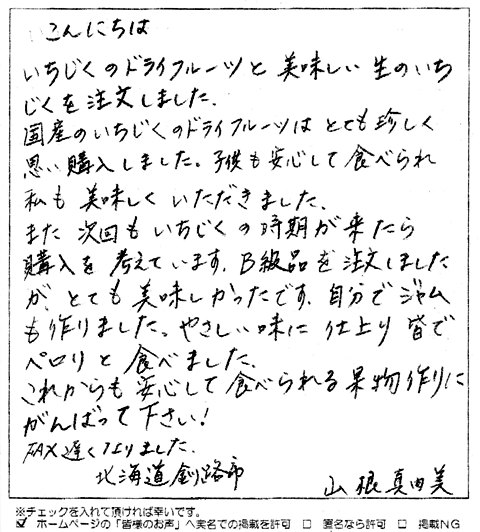 こんにちは
いちじくのドライフルーツと美味しい生のいち
じくを注文しました。
国産のいちじくのドライフルーツはとても珍しく
思い購入しました。子供も安心して食べられ
私も美味しくいただきました。
また次回もいちじくの時期が来たら
購入を考えています。B級品を注文しました
が、とても美味しかったです。自分でジャム
も作りました。やさしい味に仕上り皆で
ペロリと食べました。
これからも安心して食べられる果物作りに
がんばって下さい!
FAX遅くなりました。
北海道釧路市
山根真由美
※チェックを入れて頂ければ幸いです。
☑ ホームページの「皆様のお声」へ実名での掲載を許可 □ 匿名なら許可 □ 掲載NG